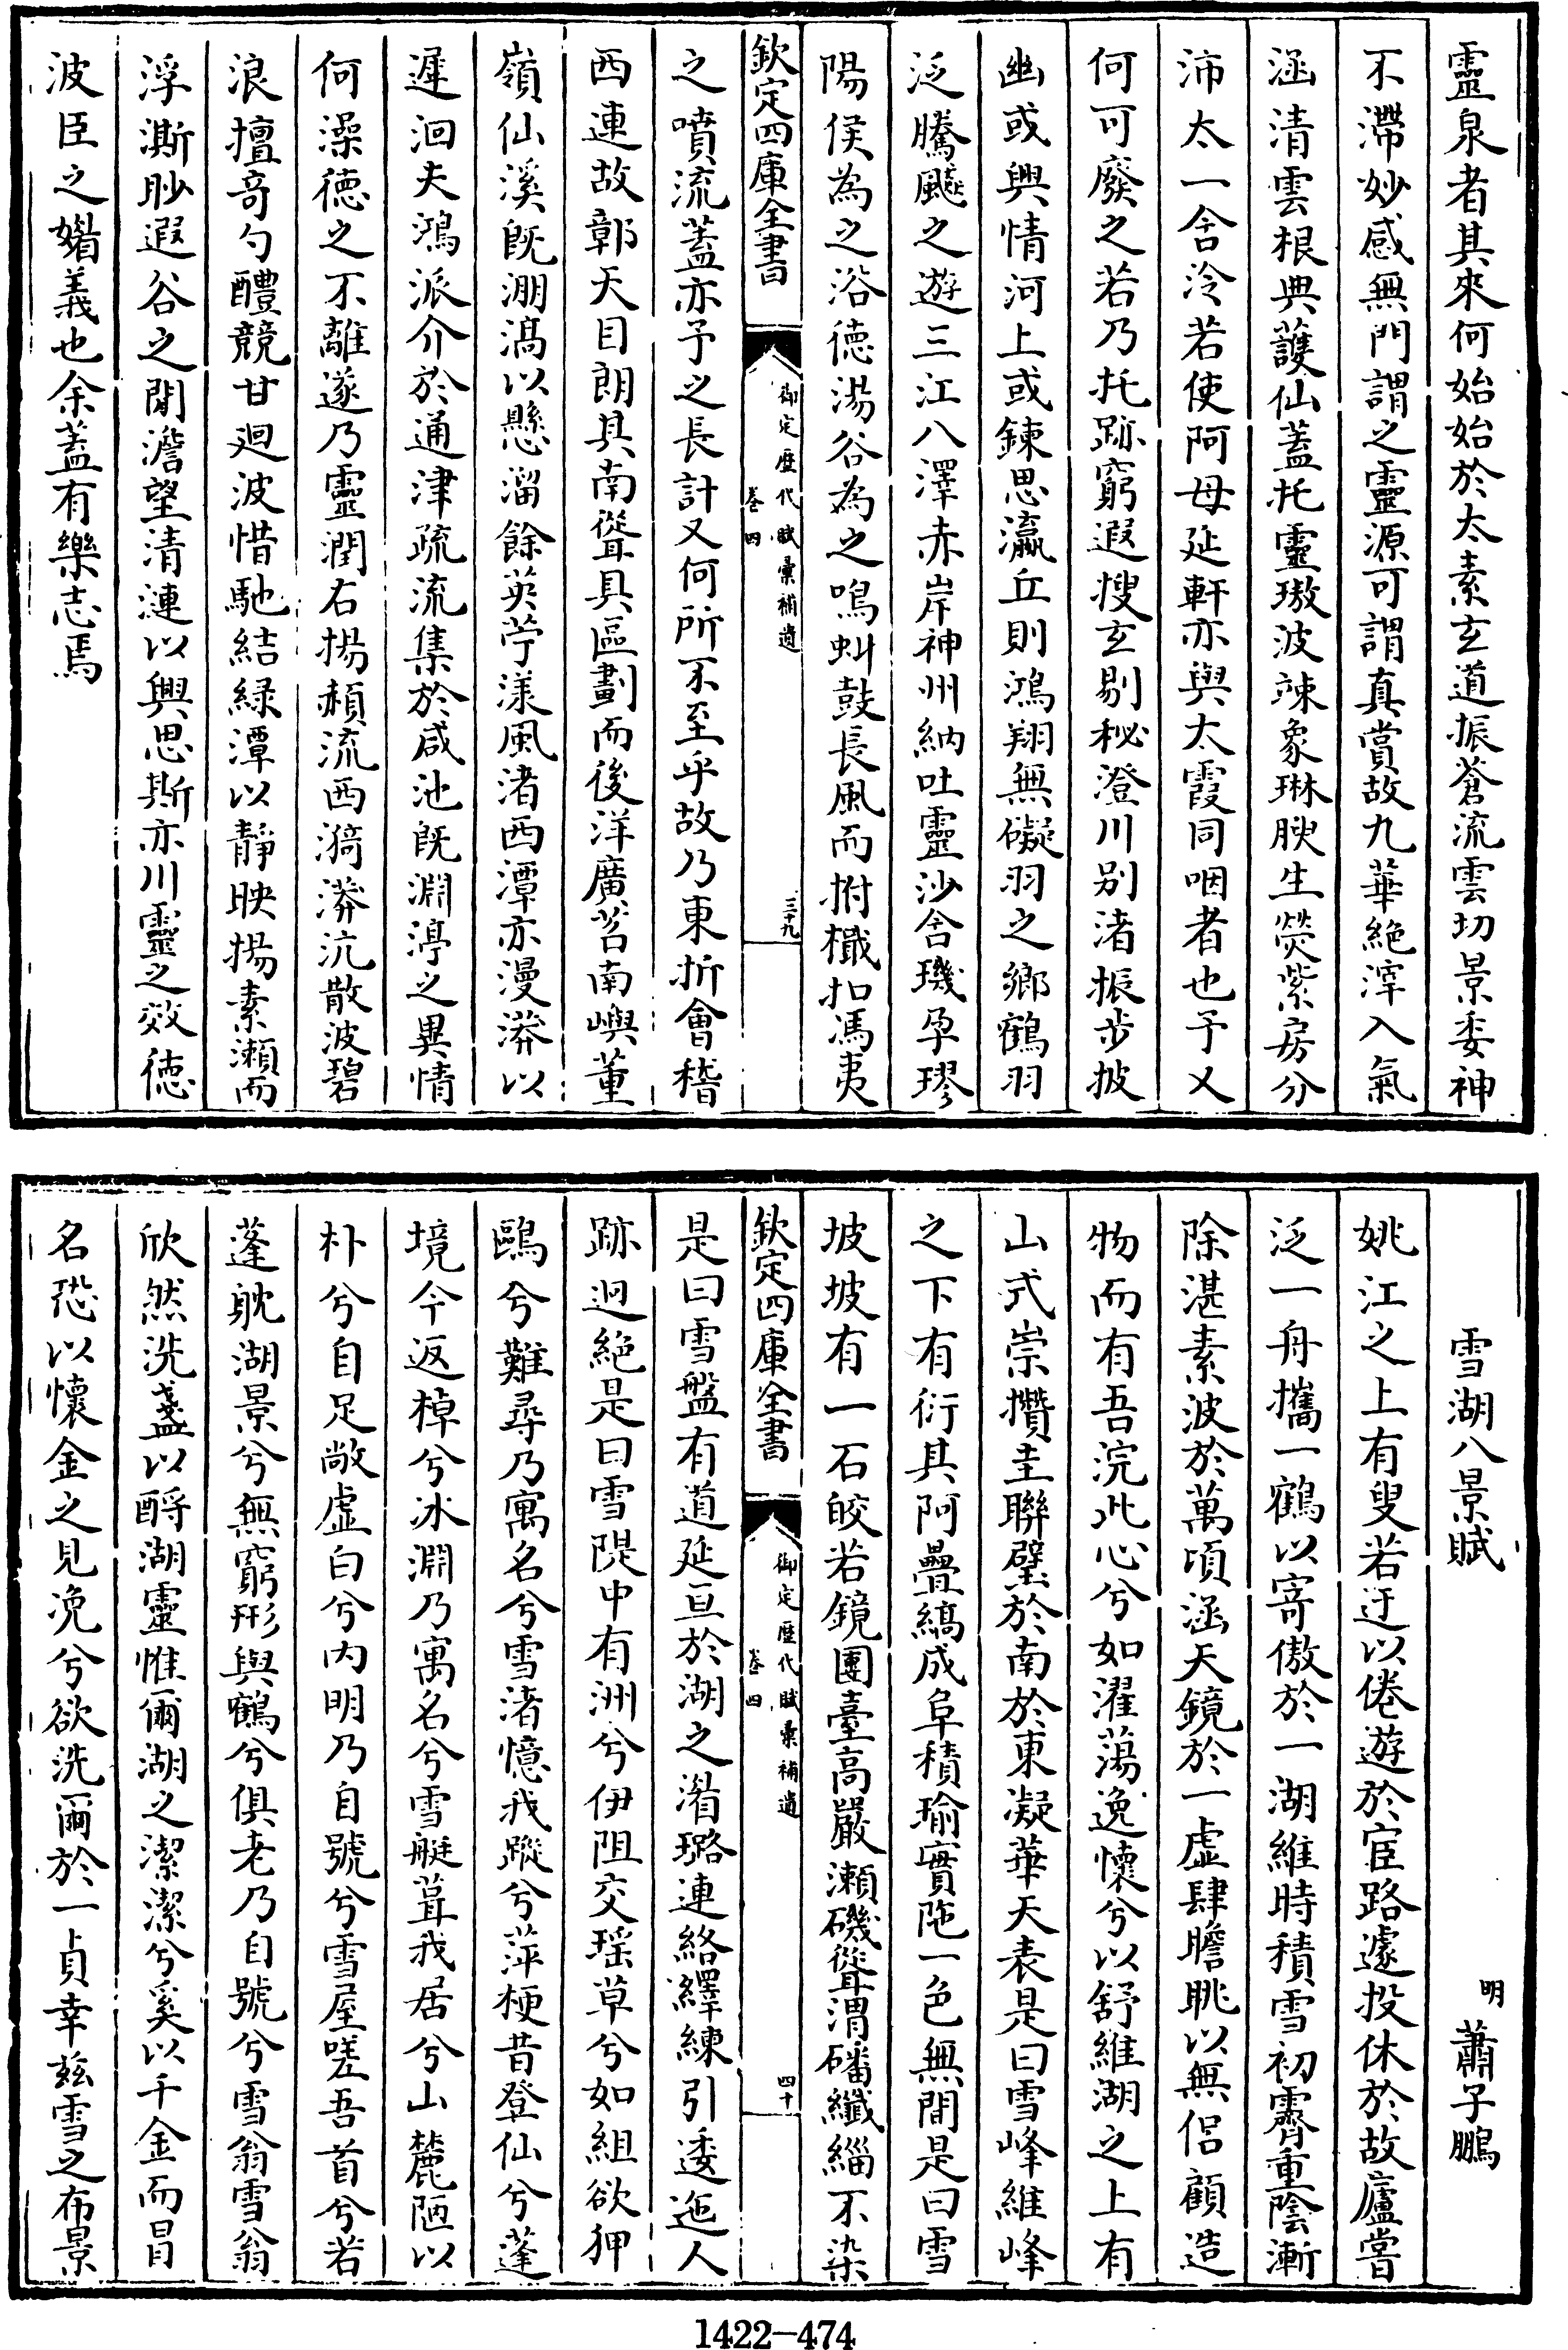 靈泉者其來何始始於太素玄道振蒼流雲切景委神
不滯妙感無門謂之靈源可謂真賞故九華絶滓入氣
涵清雲根典䕶仙蓋托靈璈波竦象琳腴生熒紫房分
沛太一含泠若使阿母延軒亦與太霞同咽者也予乂
何可廢之若乃托跡窮遐搜玄剔秘澄川别渚振步披
幽或興情河上或鍊思瀛丘則鴻翔無礙羽之鄉鶴羽
泛騰飇之遊三江八澤赤岸神州納吐靈沙含璣孕璆
陽侯為之浴德湯谷為之鳴虯鼓長風而拊檝扣馮夷
欽定四庫全書
御定歷代賦彙補遺
卷四
三十九
之噴流蓋亦予之長計又何所不至乎故乃東折會稽
西連故鄣天目朗其南聳具區劃而後洋廣苕南嶼董
嶺仙溪既淜滈以懸溜餘英苧漾風渚西潭亦漫漭以
遲洄夫鴻派介於通津疏流集於咸池既淵渟之異情
何澡德之不離遂乃靈潤右揚頳流西漪漭沆散波碧
浪擅奇勺醴競甘迴波惜馳結緑潭以靜映揚素瀨而
浮澌眇遐谷之閒澹望清漣以興思斯亦川靈之效德
波臣之媚義也余蓋有樂志焉
雪湖八景賦
明 蕭子鵬
姚江之上有叟若迂以倦遊於宦路遽投休於故廬嘗
泛一舟攜一鶴以寄傲於一湖維時積雪初霽重陰漸
除湛素波於萬頃涵天鏡於一虚肆瞻眺以無侣顧造
物而有吾浣此心兮如濯蕩逸懷兮以舒維湖之上有
山式崇攢圭聯璧於南於東凝華天表是曰雪峰維峰
之下有衍其阿疊縞成阜積瑜實陁一色無間是曰雪
坡坡有一石皎若鏡團臺高嚴瀨磯聳渭磻纖緇不染
欽定四庫全書
御定歷代賦彙補遺
卷四
四十
是曰雪盤有道延亘於湖之漘璐連絡繹練引逶迤人
跡迥絶是曰雪隄中有洲兮伊阻交瑶草兮如組欲狎
鷗兮難尋乃寓名兮雪渚憶我蹤兮萍梗昔登仙兮蓬
境今返棹兮冰淵乃寓名兮雪艇葺我居兮山麓陋以
朴兮自足敞虚白兮内明乃自號兮雪屋嗟吾首兮若
蓬躭湖景兮無窮形與鶴兮俱老乃自號兮雪翁雪翁
欣然洗盞以酹湖靈惟爾湖之潔潔兮奚以千金而冒
名恐以懷金之見浼兮欲洗爾於一貞幸兹雪之布景
1422—474